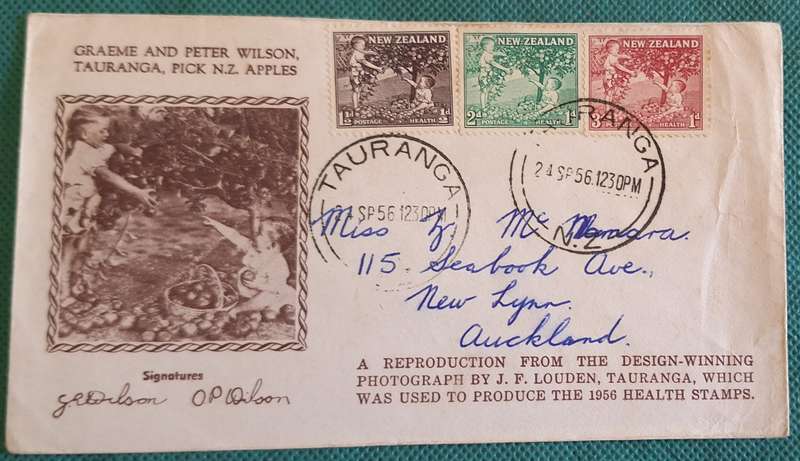 GRAEME AND PETER WILSON,
TAURANGA, PICK N.Z. APPLES
NEW ZEALAND
½d POSTAGE HEALTH ½d
NEW ZEALAND
2d POSTAGE HEALTH 1d
NEW ZEALAND
3d POSTAGE HEALTH 1d
TAURANGA
24 SP 56.1230PM
TAURANGA
24 SP 56.1230PM
N.Z
Miss Mc Namara.
115 Seabook Ave.,
New Lynn.
Auckland.
Signatures
A REPRODUCTION FROM THE DESIGN-WINNING
PHOTOGRAPH BY J. F. LOUDEN, TAURANGA, WHICH
WAS USED TO PRODUCE THE 1956 HEALTH STAMPS.
GEWilson OPWilson